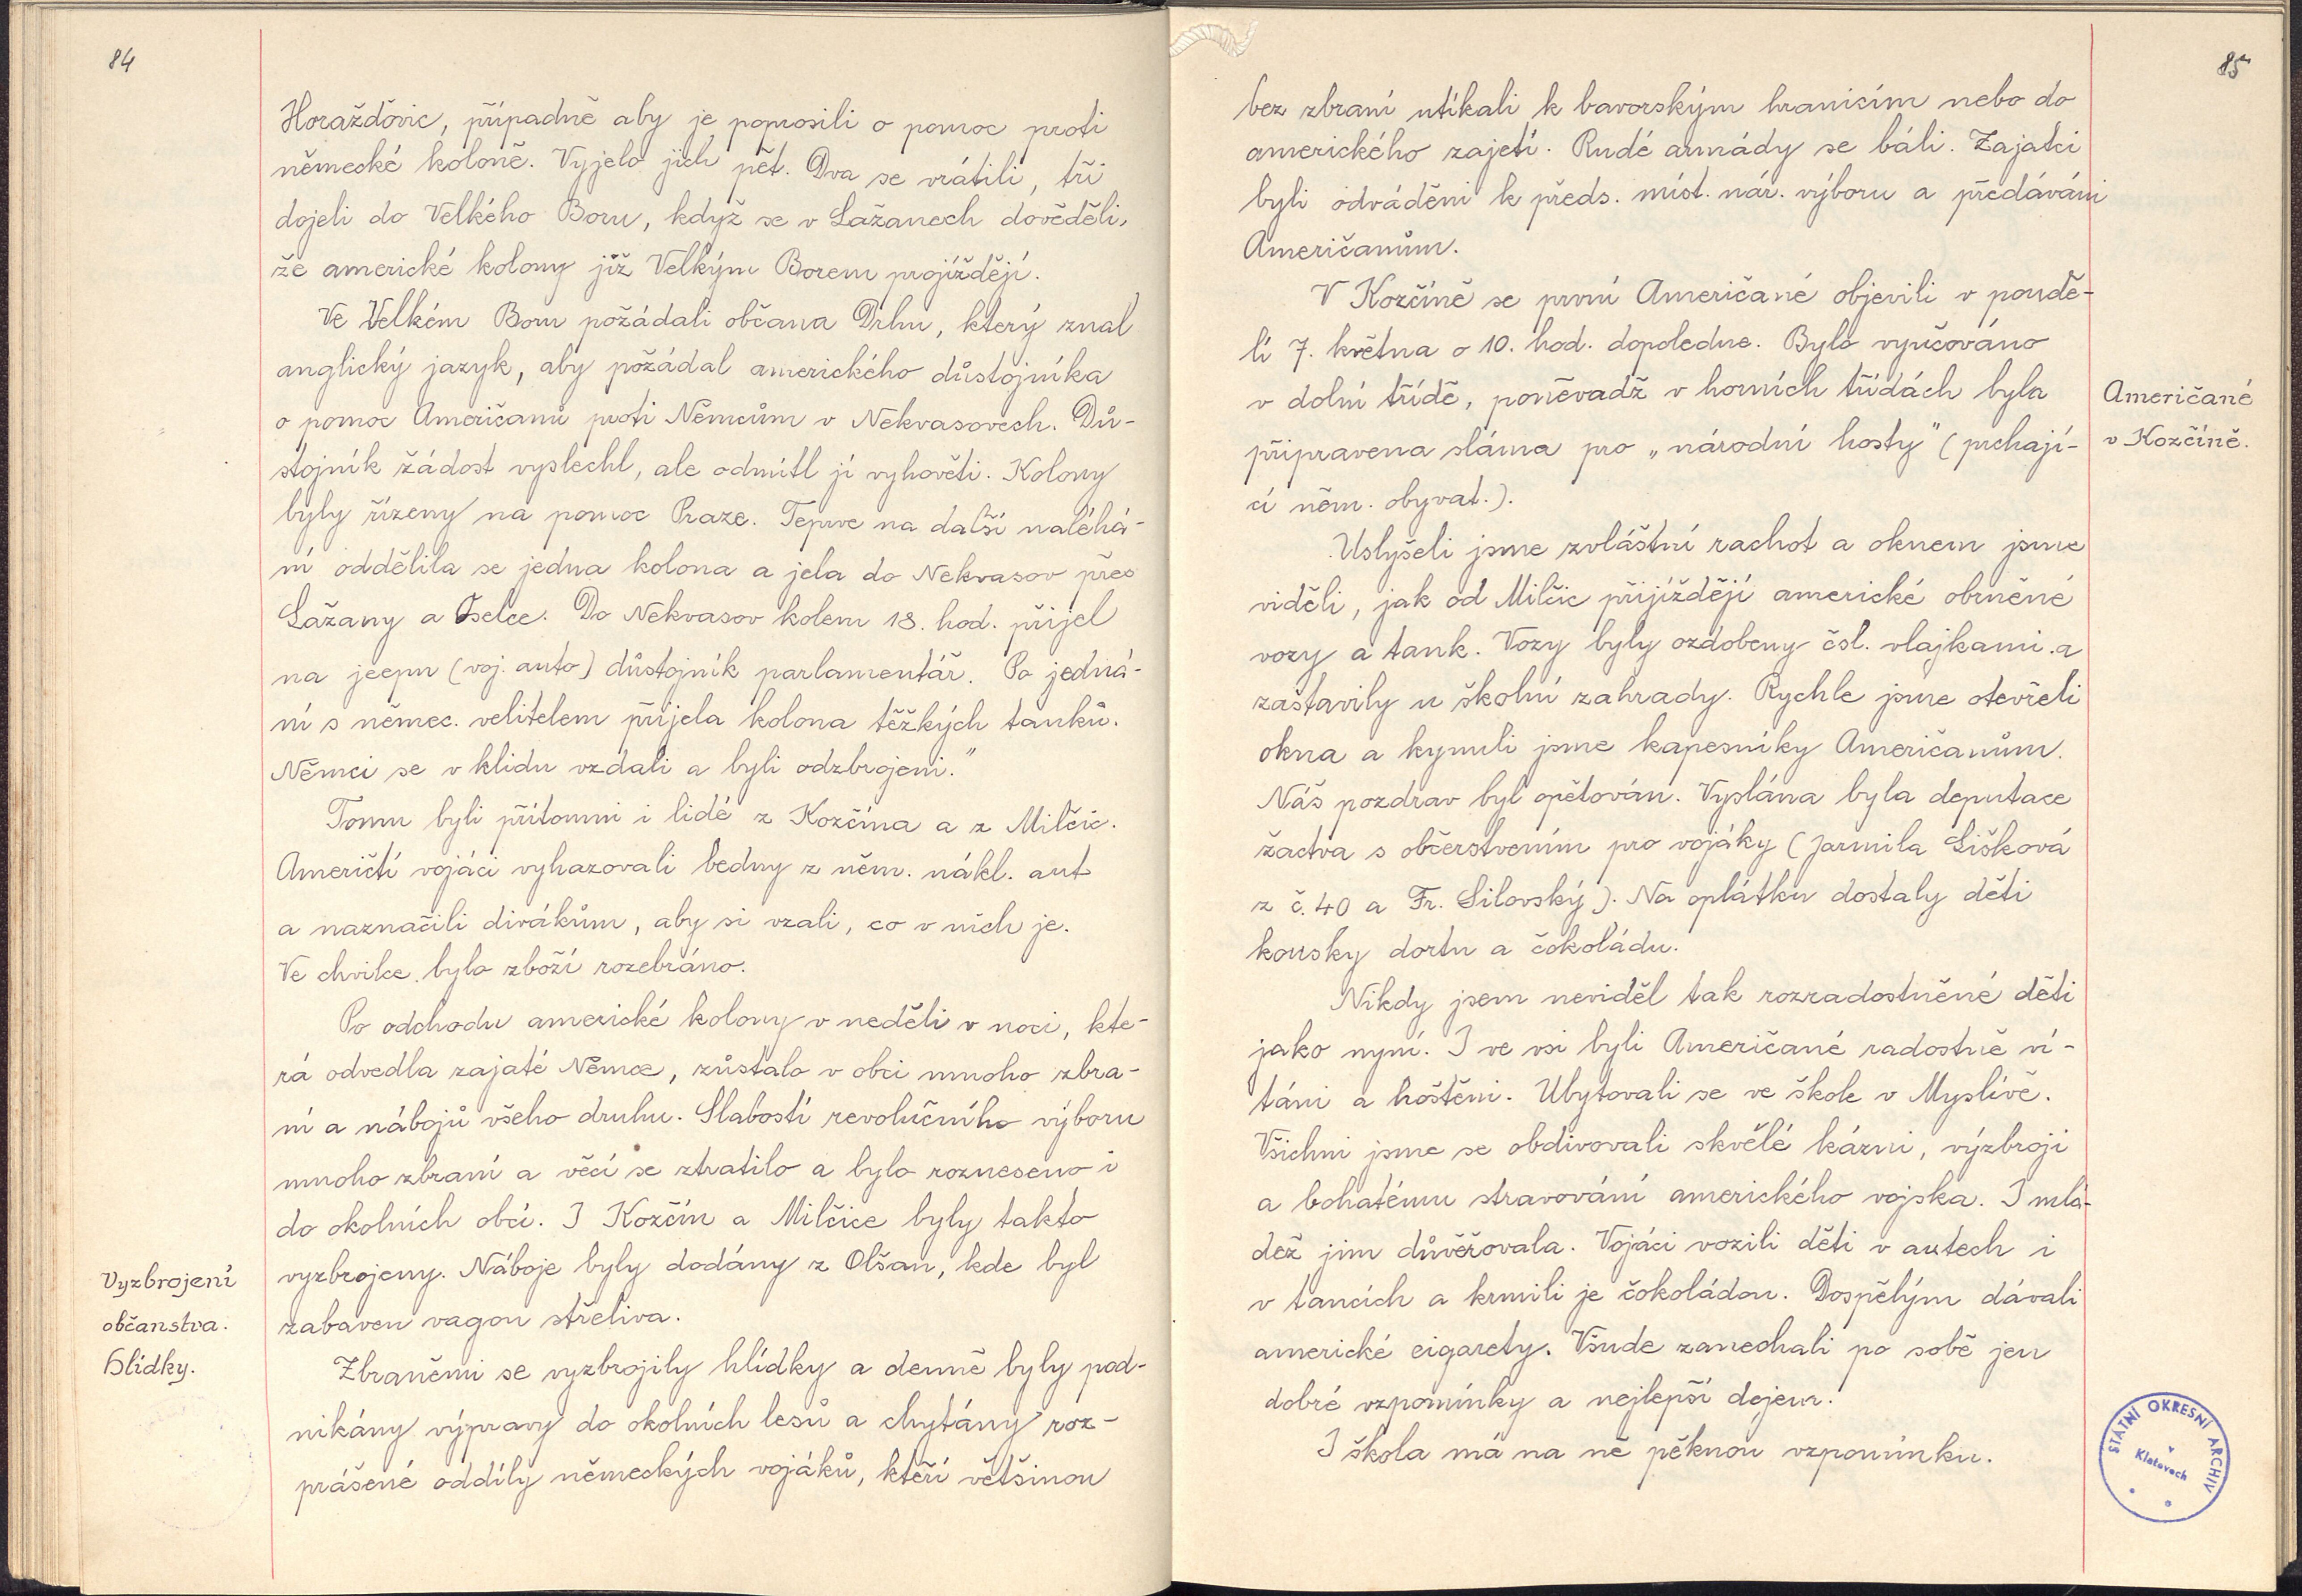 84
Horažďovic, případně aby je poprosili o pomoc proti
německé koloně. Vyjelo jich pět. Dva se vrátili, tři
dojeli do Velkého Boru, když se v Lažanech dověděli,
že americké kolony již Velkým Borem projíždějí.
Ve Velkém Boru požádali občana Drhu, který znal
anglický jazyk, aby požádal amerického důstojníka
o pomoc Američanů proti Němcům v Nekvasovech. Dů-
stojník žádost vyslechl, ale odmítl jí vyhověti. Kolony
byly řízeny na pomoc Praze. Teprve na další naléhá-
ní oddělila se jedna kolona a jela do Nekvasov přes
Lažany a Oselce. Do Nekvasov kolem 18. hod. přijel
na jeepu (voj. auto) důstojník parlamentář. Po jedná-
ní s němec. velitelem přijela kolona těžkých tanků.
Němci se v klidu vzdali a byli odzbrojeni."
Tomu byli přítomni i lidé z Kozčína a z Milčic.
Američtí vojáci vyhazovali bedny z něm. nákl. aut
a naznačili divákům, aby si vzali, co v nich je.
Ve chvilce bylo zboží rozebráno.
Po odchodu americké kolony v neděli v noci, kte-
rá odvedla zajaté Němce, zůstalo v obci mnoho zbra-
ní a nábojů všeho druhu. Slabostí revolučního výboru
mnoho zbraní a věcí se ztratilo a bylo rozneseno i
do okolních obcí. I Kozčín a Milčice byly takto
Vyzbrojení
občanstva.
Hlídky.
vyzbrojeny. Náboje byly dodány z Olšan, kde byl
zabaven vagon střeliva.
Zbraněmi se vyzbrojily hlídky a denně byly pod-
nikány výpravy do okolních lesů a chytány roz-
prášené oddíly německých vojáků, kteří většinou
85
bez zbraní utíkali k bavorským hranicím nebo do
amerického zajetí. Rudé armády se báli. Zajatci
byli odváděni k předs. míst. nár. výboru a předáváni
Američanům.
V Kozčíně se první Američané objevili v pondě-
lí 7. května o 10. hod. dopoledne. Bylo vyučováno
v dolní třídě, poněvadž v horních třídách byla
Američané
v Kozčíně.
připravena sláma pro „národní hosty" (prchají-
cí něm. obyvat.).
Uslyšeli jsme zvláštní rachot a oknem jsme
viděli, jak od Milčic přijíždějí americké obrněné
vozy a tank. Vozy byly ozdobeny čsl. vlajkami a
zastavily u školní zahrady. Rychle jsme otevřeli
okna a kynuli jsme kapesníky Američanům.
Náš pozdrav byl opětován. Vyslána byla deputace
žactva s občerstvením pro vojáky (Jarmila Lišková
z č. 40 a Fr. Silovský). Na oplátku dostaly děti
kousky dortu a čokoládu.
Nikdy jsem neviděl tak rozradostněné děti
jako nyní. I ve vsi byli Američané radostně ví-
táni a hoštěni. Ubytovali se ve škole v Myslívě.
Všichni jsme se obdivovali skvělé kázni, výzbroji
a bohatému stravování amerického vojska. I mlá-
dež jim důvěřovala. Vojáci vozili děti v autech i
v tancích a krmili je čokoládou. Dospělým dávali
americké cigarety. Všude zanechali po sobě jen
dobré vzpomínky a nejlepší dojem.
I škola má na ně pěknou vzpomínku.
STÁTNÍ OKRESNÍ ARCHIV
v
Klatovech